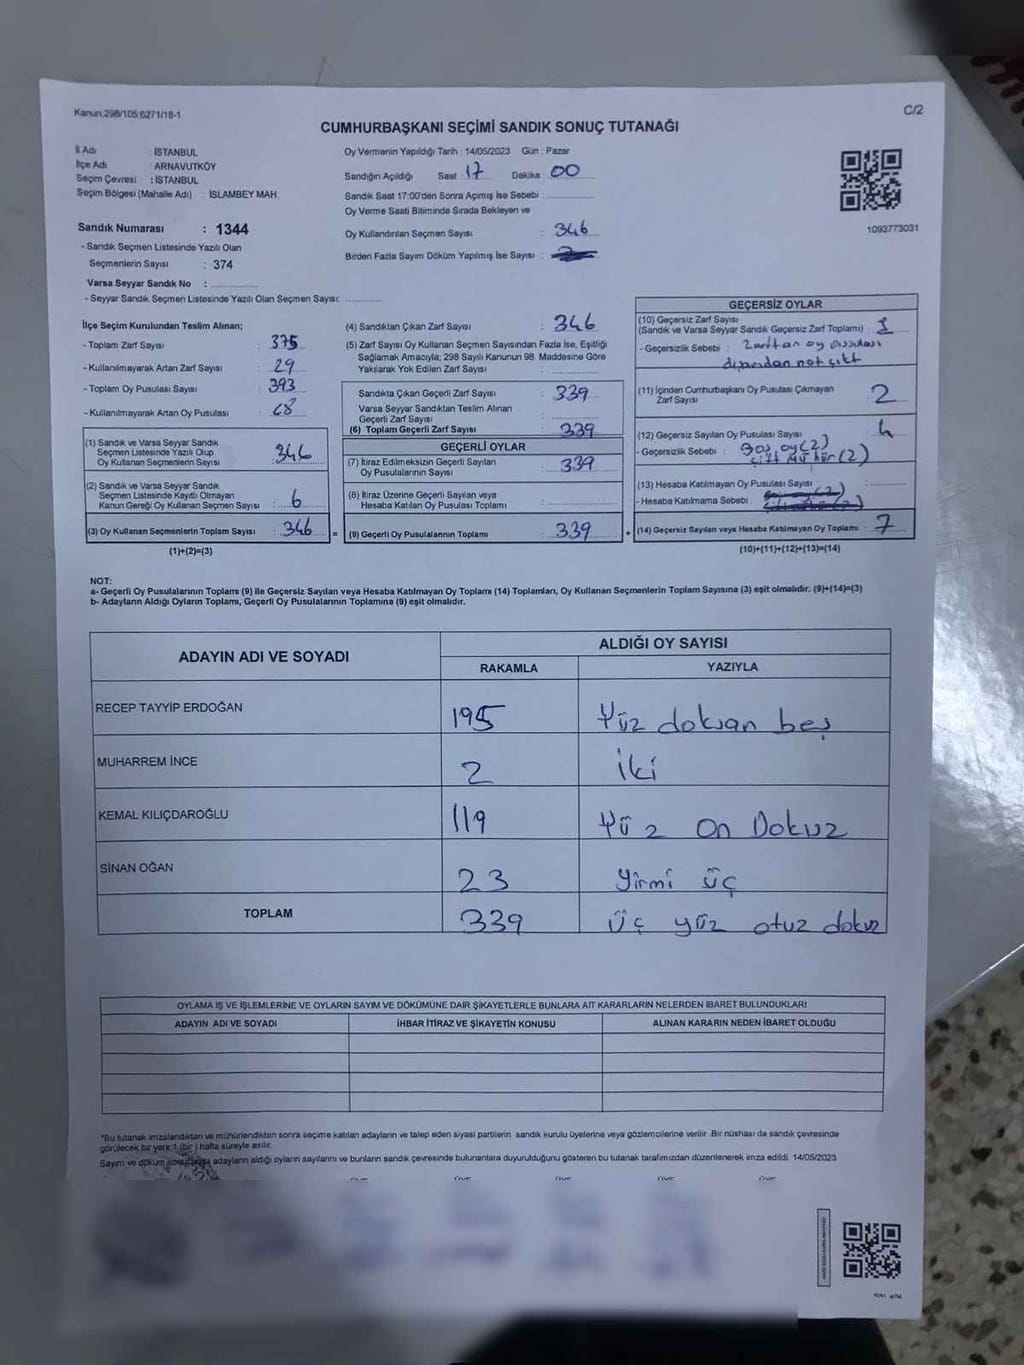 Kanun:298/105;6271/18-1
C/2
CUMHURBAŞKANI SEÇİMİ SANDIK SONUÇ TUTANAĞI
İl Adı : İSTANBUL
İlçe Adı : ARNAVUTKÖY
Seçim Çevresi : İSTANBUL
Seçim Bölgesi (Mahalle Adı) : İSLAMBEY MAH.
Oy Vermenin Yapıldığı Tarih : 14/05/2023 Gün : Pazar
Sandığın Açıldığı Saat : 17 Dakika : 00
Sandık Saat 17:00'den Sonra Açımış İse Sebebi :
Oy Verme Saati Bitiminde Sırada Bekleyen ve
Oy Kullandırılan Seçmen Sayısı : 346
Birden Fazla Sayım Döküm Yapılmış İse Sayısı :
1093773031
Sandık Numarası : 1344
- Sandık Seçmen Listesinde Yazılı Olan
Seçmenlerin Sayısı : 374
Varsa Seyyar Sandık No :
- Seyyar Sandık Seçmen Listesinde Yazılı Olan Seçmen Sayısı:
İlçe Seçim Kurulundan Teslim Alınan;
- Toplam Zarf Sayısı : 375
- Kullanılmayarak Artan Zarf Sayısı : 29
- Toplam Oy Pusulası Sayısı : 393
- Kullanılmayarak Artan Oy Pusulası :
(1) Sandık ve Varsa Seyyar Sandık
Seçmen Listesinde Yazılı Olup
Oy Kullanan Seçmenlerin Sayısı : 346
(2) Sandık ve Varsa Seyyar Sandık
Seçmen Listesinde Kayıtlı Olmayan
Kanun Gereği Oy Kullanan Seçmen Sayısı : 6
(3) Oy Kullanan Seçmenlerin Toplam Sayısı : 346
(1)+(2)=(3)
(4) Sandıktan Çıkan Zarf Sayısı : 346
(5) Zarf Sayısı Oy Kullanan Seçmen Sayısından Fazla İse, Eşitliği
Sağlamak Amacıyla; 298 Sayılı Kanunun 98. Maddesine Göre
Yakılarak Yok Edilen Zarf Sayısı :
Sandıkta Çıkan Geçerli Zarf Sayısı : 339
Varsa Seyyar Sandıktan Teslim Alınan
Geçerli Zarf Sayısı :
(6) Toplam Geçerli Zarf Sayısı : 339
GEÇERLİ OYLAR
(7) İtiraz Edilmeksizin Geçerli Sayılan
Oy Pusulalarının Sayısı : 339
(8) İtiraz Üzerine Geçerli Sayılan veya
Hesaba Katılan Oy Pusulası Toplamı :
= (9) Geçerli Oy Pusulalarının Toplamı : 339 +
GEÇERSİZ OYLAR
(10) Geçersiz Zarf Sayısı
(Sandık ve Varsa Seyyar Sandık Geçersiz Zarf Toplamı) : 1
- Geçersizlik Sebebi : Zarftan oy pusulası
dışarıdan not çıktı
(11) İçinden Cumhurbaşkanı Oy Pusulası Çıkmayan
Zarf Sayısı : 2
(12) Geçersiz Sayılan Oy Pusulası Sayısı : 4
- Geçersizlik Sebebi : Boş oy (2)
Çift Mühür (2)
(13) Hesaba Katılmayan Oy Pusulası Sayısı :
- Hesaba Katılmama Sebebi :
(14) Geçersiz Sayılan veya Hesaba Katılmayan Oy Toplamı : 7
(10)+(11)+(12)+(13)=(14)
NOT:
a- Geçerli Oy Pusulalarının Toplamı (9) ile Geçersiz Sayılan veya Hesaba Katılmayan Oy Toplamı (14) Toplamları, Oy Kullanan Seçmenlerin Toplam Sayısına (3) eşit olmalıdır. (9)+(14)=(3)
b- Adayların Aldığı Oyların Toplamı, Geçerli Oy Pusulalarının Toplamına (9) eşit olmalıdır.
ADAYIN ADI VE SOYADI
ALDIĞI OY SAYISI
RAKAMLA YAZIYLA
RECEP TAYYİP ERDOĞAN 195 Yüz doksan beş
MUHARREM İNCE 2 İki
KEMAL KILIÇDAROĞLU 119 Yüz On Dokuz
SİNAN OĞAN 23 yirmi üç
TOPLAM 339 Üç yüz otuz dokuz
OYLAMA İŞ VE İŞLEMLERİNE VE OYLARIN SAYIM VE DÖKÜMÜNE DAİR ŞİKAYETLERLE BUNLARA AİT KARARLARIN NELERDEN İBARET BULUNDUKLARI
ADAYIN ADI VE SOYADI İHBAR İTİRAZ VE ŞİKAYETİN KONUSU ALINAN KARARIN NEDEN İBARET OLDUĞU
*Bu tutanak imzalandıktan ve mühürlendikten sonra seçime katılan adayların ve talep eden siyasi partilerin sandık kurulu üyelerine veya gözlemcilerine verilir. Bir nüshası da sandık çevresinde
görülecek bir yere 1 (bir) hafta süreyle asılır.
Sayım ve döküm sonucunda adayların aldığı oyların sayılarını ve bunların sandık çevresinde bulunanlara duyurulduğunu gösteren bu tutanak tarafımızdan düzenlenerek imza edildi. 14/05/2023